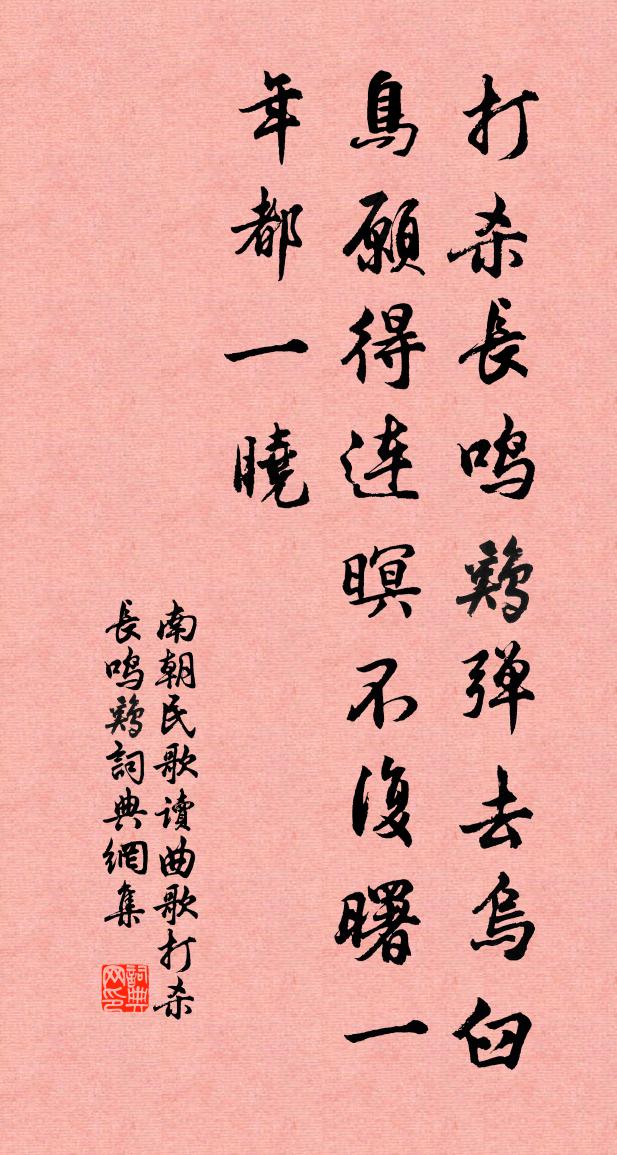 打杀長鸣鷄弹去烏臼
鳥願得连暝不復曙一
年都一曉
南朝民歌读曲歌打杀
長鸣鷄詞典網集
詞典网印